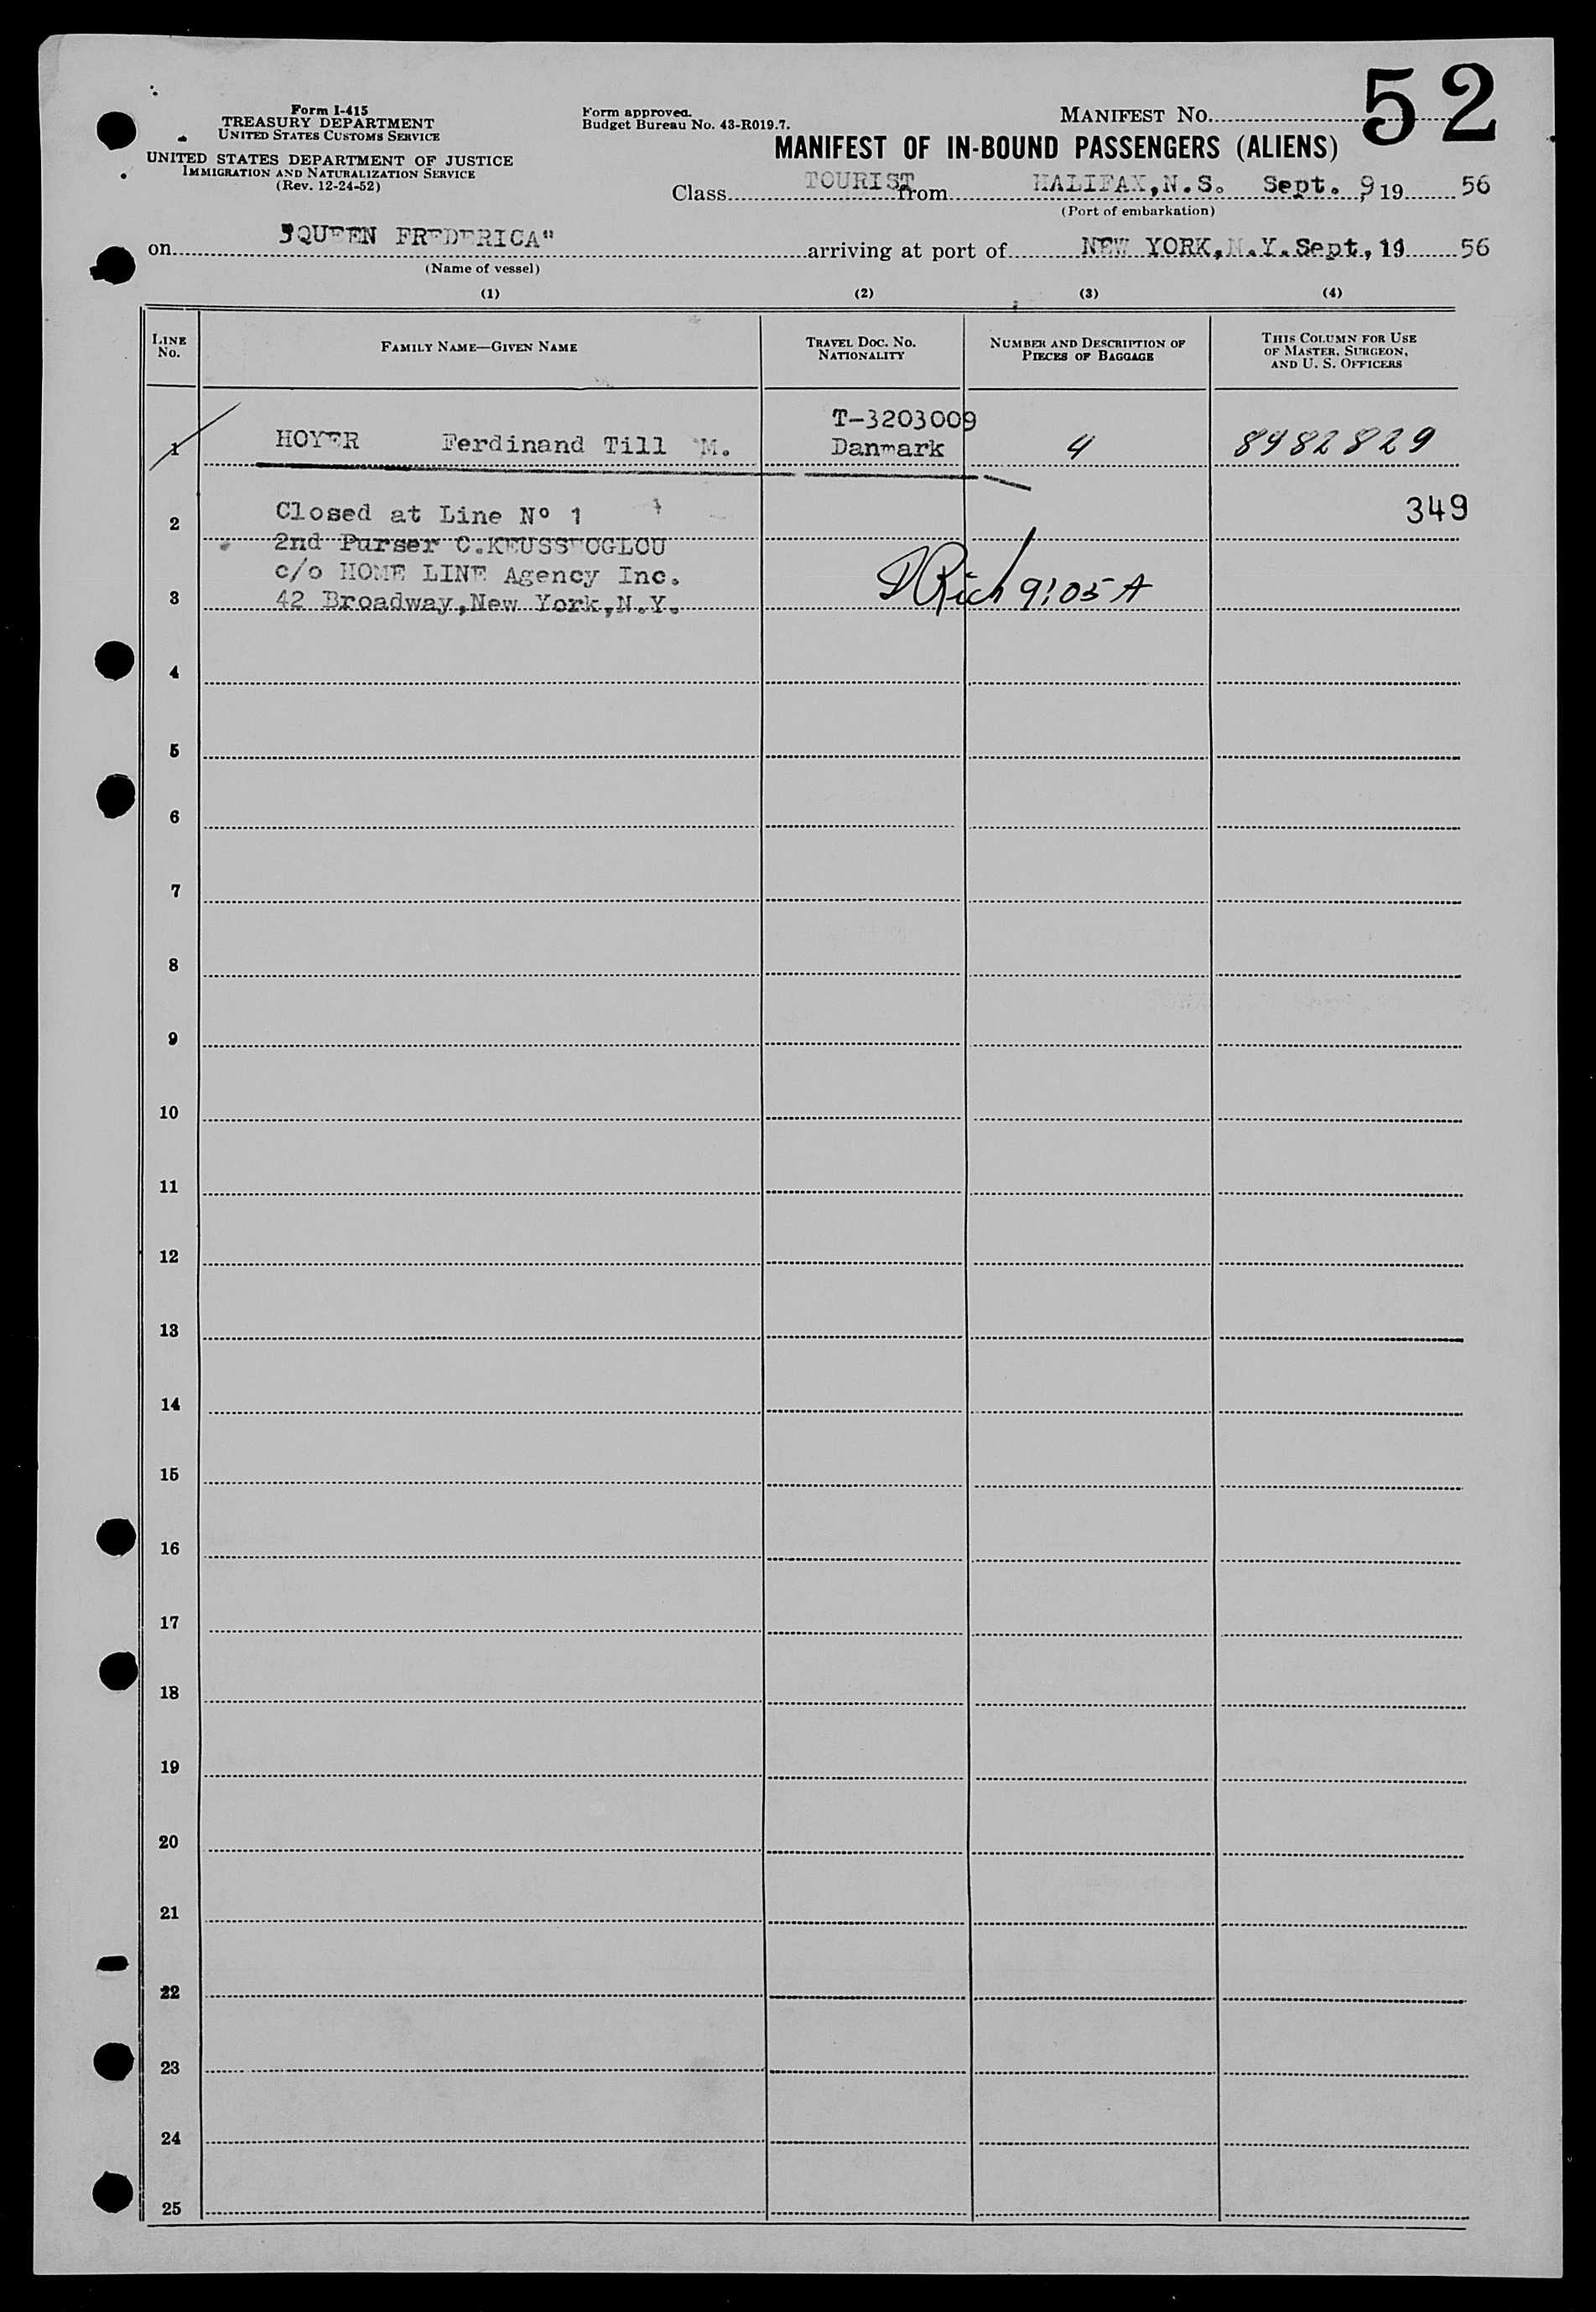 52
Form I-415
TREASURY DEPARTMENT
UNITED STATES CUSTOMS SERVICE
UNITED STATES DEPARTMENT OF JUSTICE
IMMIGRATION AND NATURALIZATION SERVICE
(Rev. 12-24-52)
Form approved.
Budget Bureau No. 43-R019.7.
MANIFEST No.
MANIFEST OF IN-BOUND PASSENGERS (ALIENS)
Class TOURIST from HALIFAX,N.S. Sept. 9, 19 56
(Port of embarkation)
on "QUEEN FREDERICA" arriving at port of NEW YORK,N.Y. Sept, 19 56
(Name of vessel)
(1) (2) (3) (4)
LINE No. FAMILY NAME—GIVEN NAME TRAVEL DOC. No. NATIONALITY NUMBER AND DESCRIPTION OF PIECES OF BAGGAGE THIS COLUMN FOR USE OF MASTER, SURGEON, AND U. S. OFFICERS
T-3203009
1 HOYER Ferdinand Till M. Danmark 4 8982829
2 Closed at Line Nº 1 349
2nd Purser C.KEUSSEOGLOU
c/o HOME LINE Agency Inc.
3 42 Broadway,New York,N.Y. Rich 9:05 A
4
5
6
7
8
9
10
11
12
13
14
15
16
17
18
19
20
21
22
23
24
25